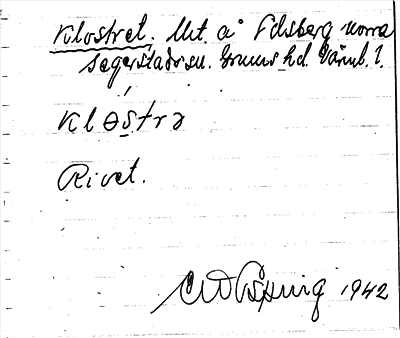 Klostret. Urt. å Edsberg norra
Segerstads sn. Grums hd. Värml. l.
Kløstrə
Rivet.
1942